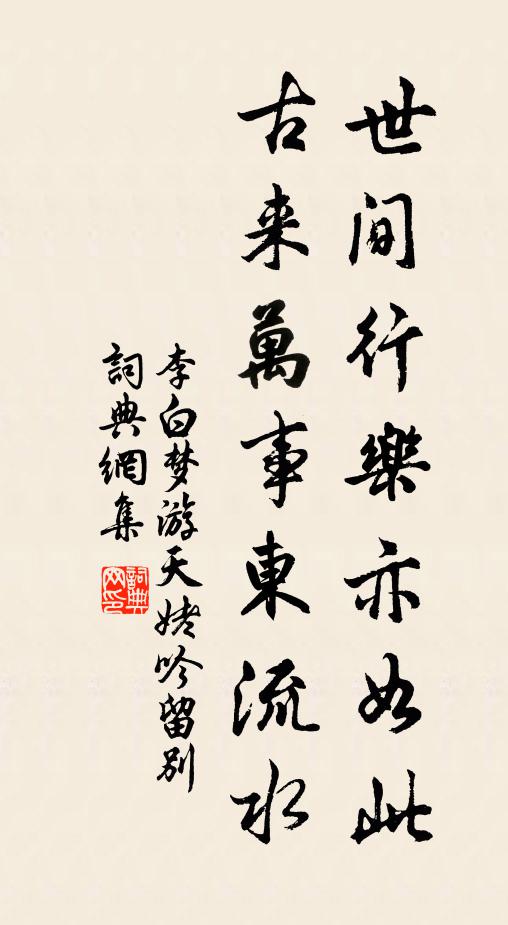 世間行樂亦如此
古来萬事東流水
李白梦游天姥吟留别
詞典網集
詞典網印